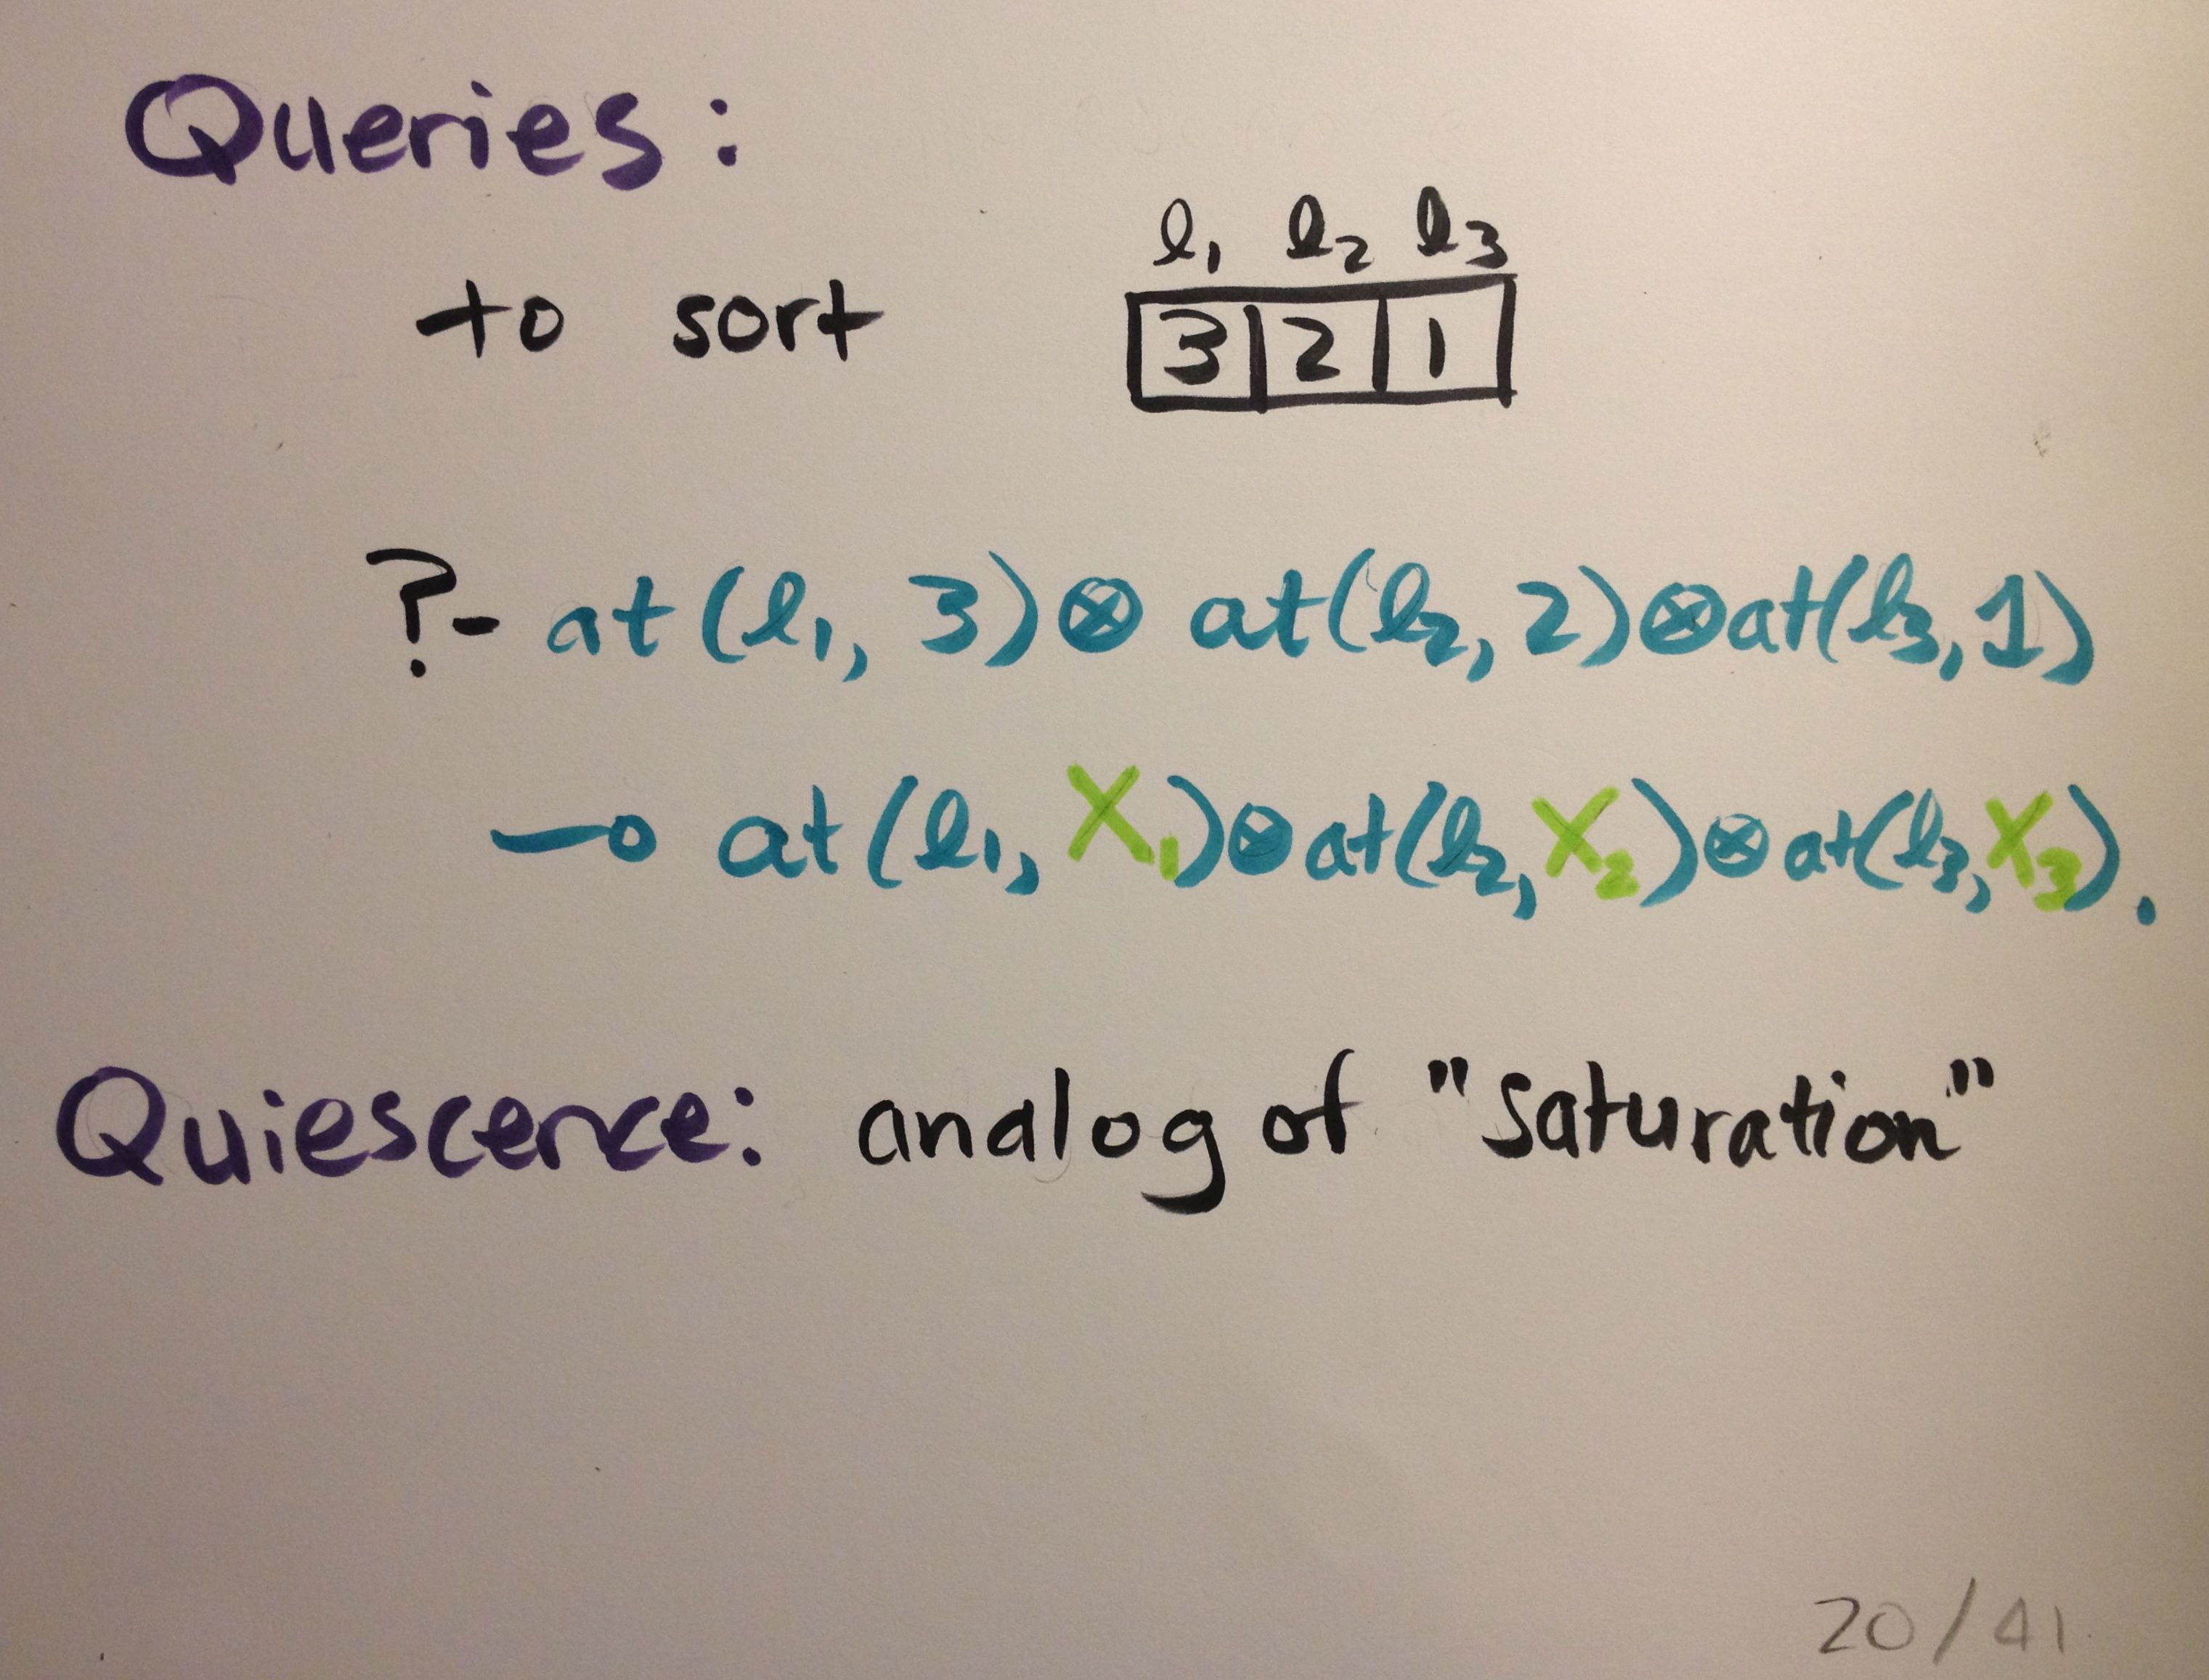 Queries:
l₁ l₂ l₃
to sort 3 2 1
?- at(l₁, 3) ⊗ at(l₂, 2) ⊗ at(l₃, 1)
⊸ at(l₁, X₁) ⊗ at(l₂, X₂) ⊗ at(l₃, X₃).
Quiescence: analog of "saturation"
20/41